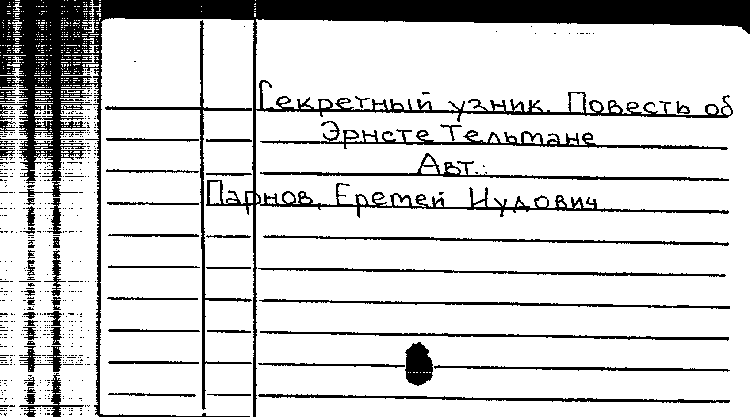 Секретный узник. Повесть об
Эрнсте Тельмане
Авт.:
Парнов, Еремей Иудович